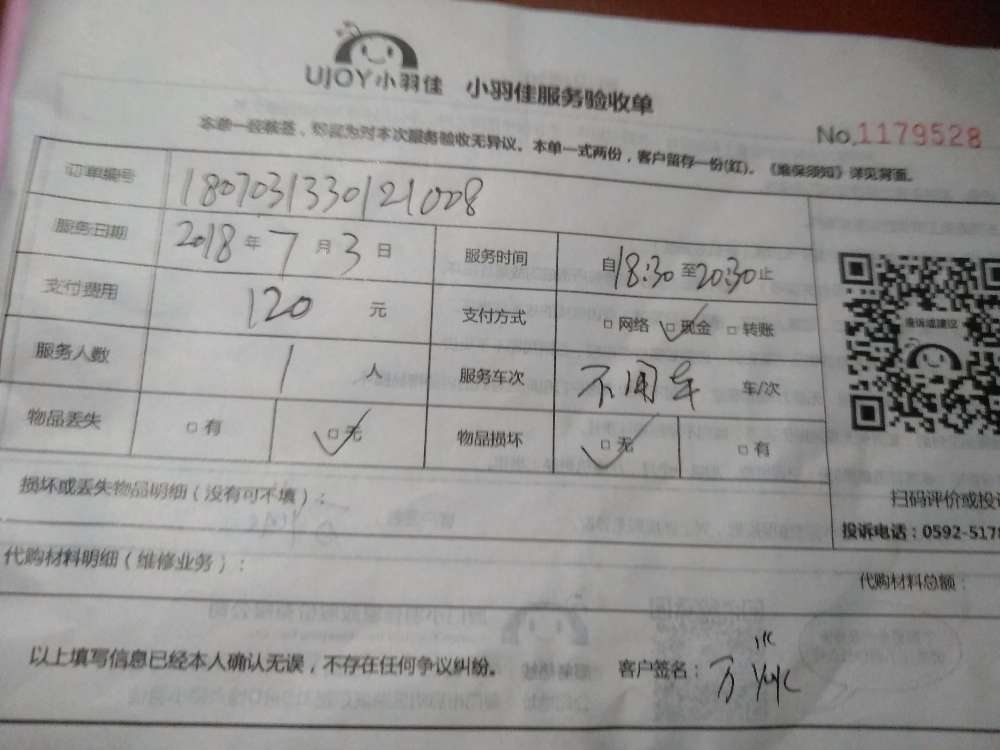 UJOY小羽佳 小羽佳服务验收单
No.1179528
本单一经核签，即视为对本次服务验收无异议。本单一式两份，客户留存一份(红)。《维保须知》详见背面。
订单编号 1807031330121008
服务日期 2018年7月3日 服务时间 自18:30至20:30止
支付费用 120 元 支付方式 □网络 □现金 □转账
服务人数 1 人 服务车次 不用车 车/次
物品丢失 □有 □无 物品损坏 □无 □有
投诉或建议
损坏或丢失物品明细（没有可不填）：
扫码评价或投诉
投诉电话：0592-5178
代购材料明细（维修业务）：
代购材料总额：
以上填写信息已经本人确认无误，不存在任何争议纠纷。 客户签名：万